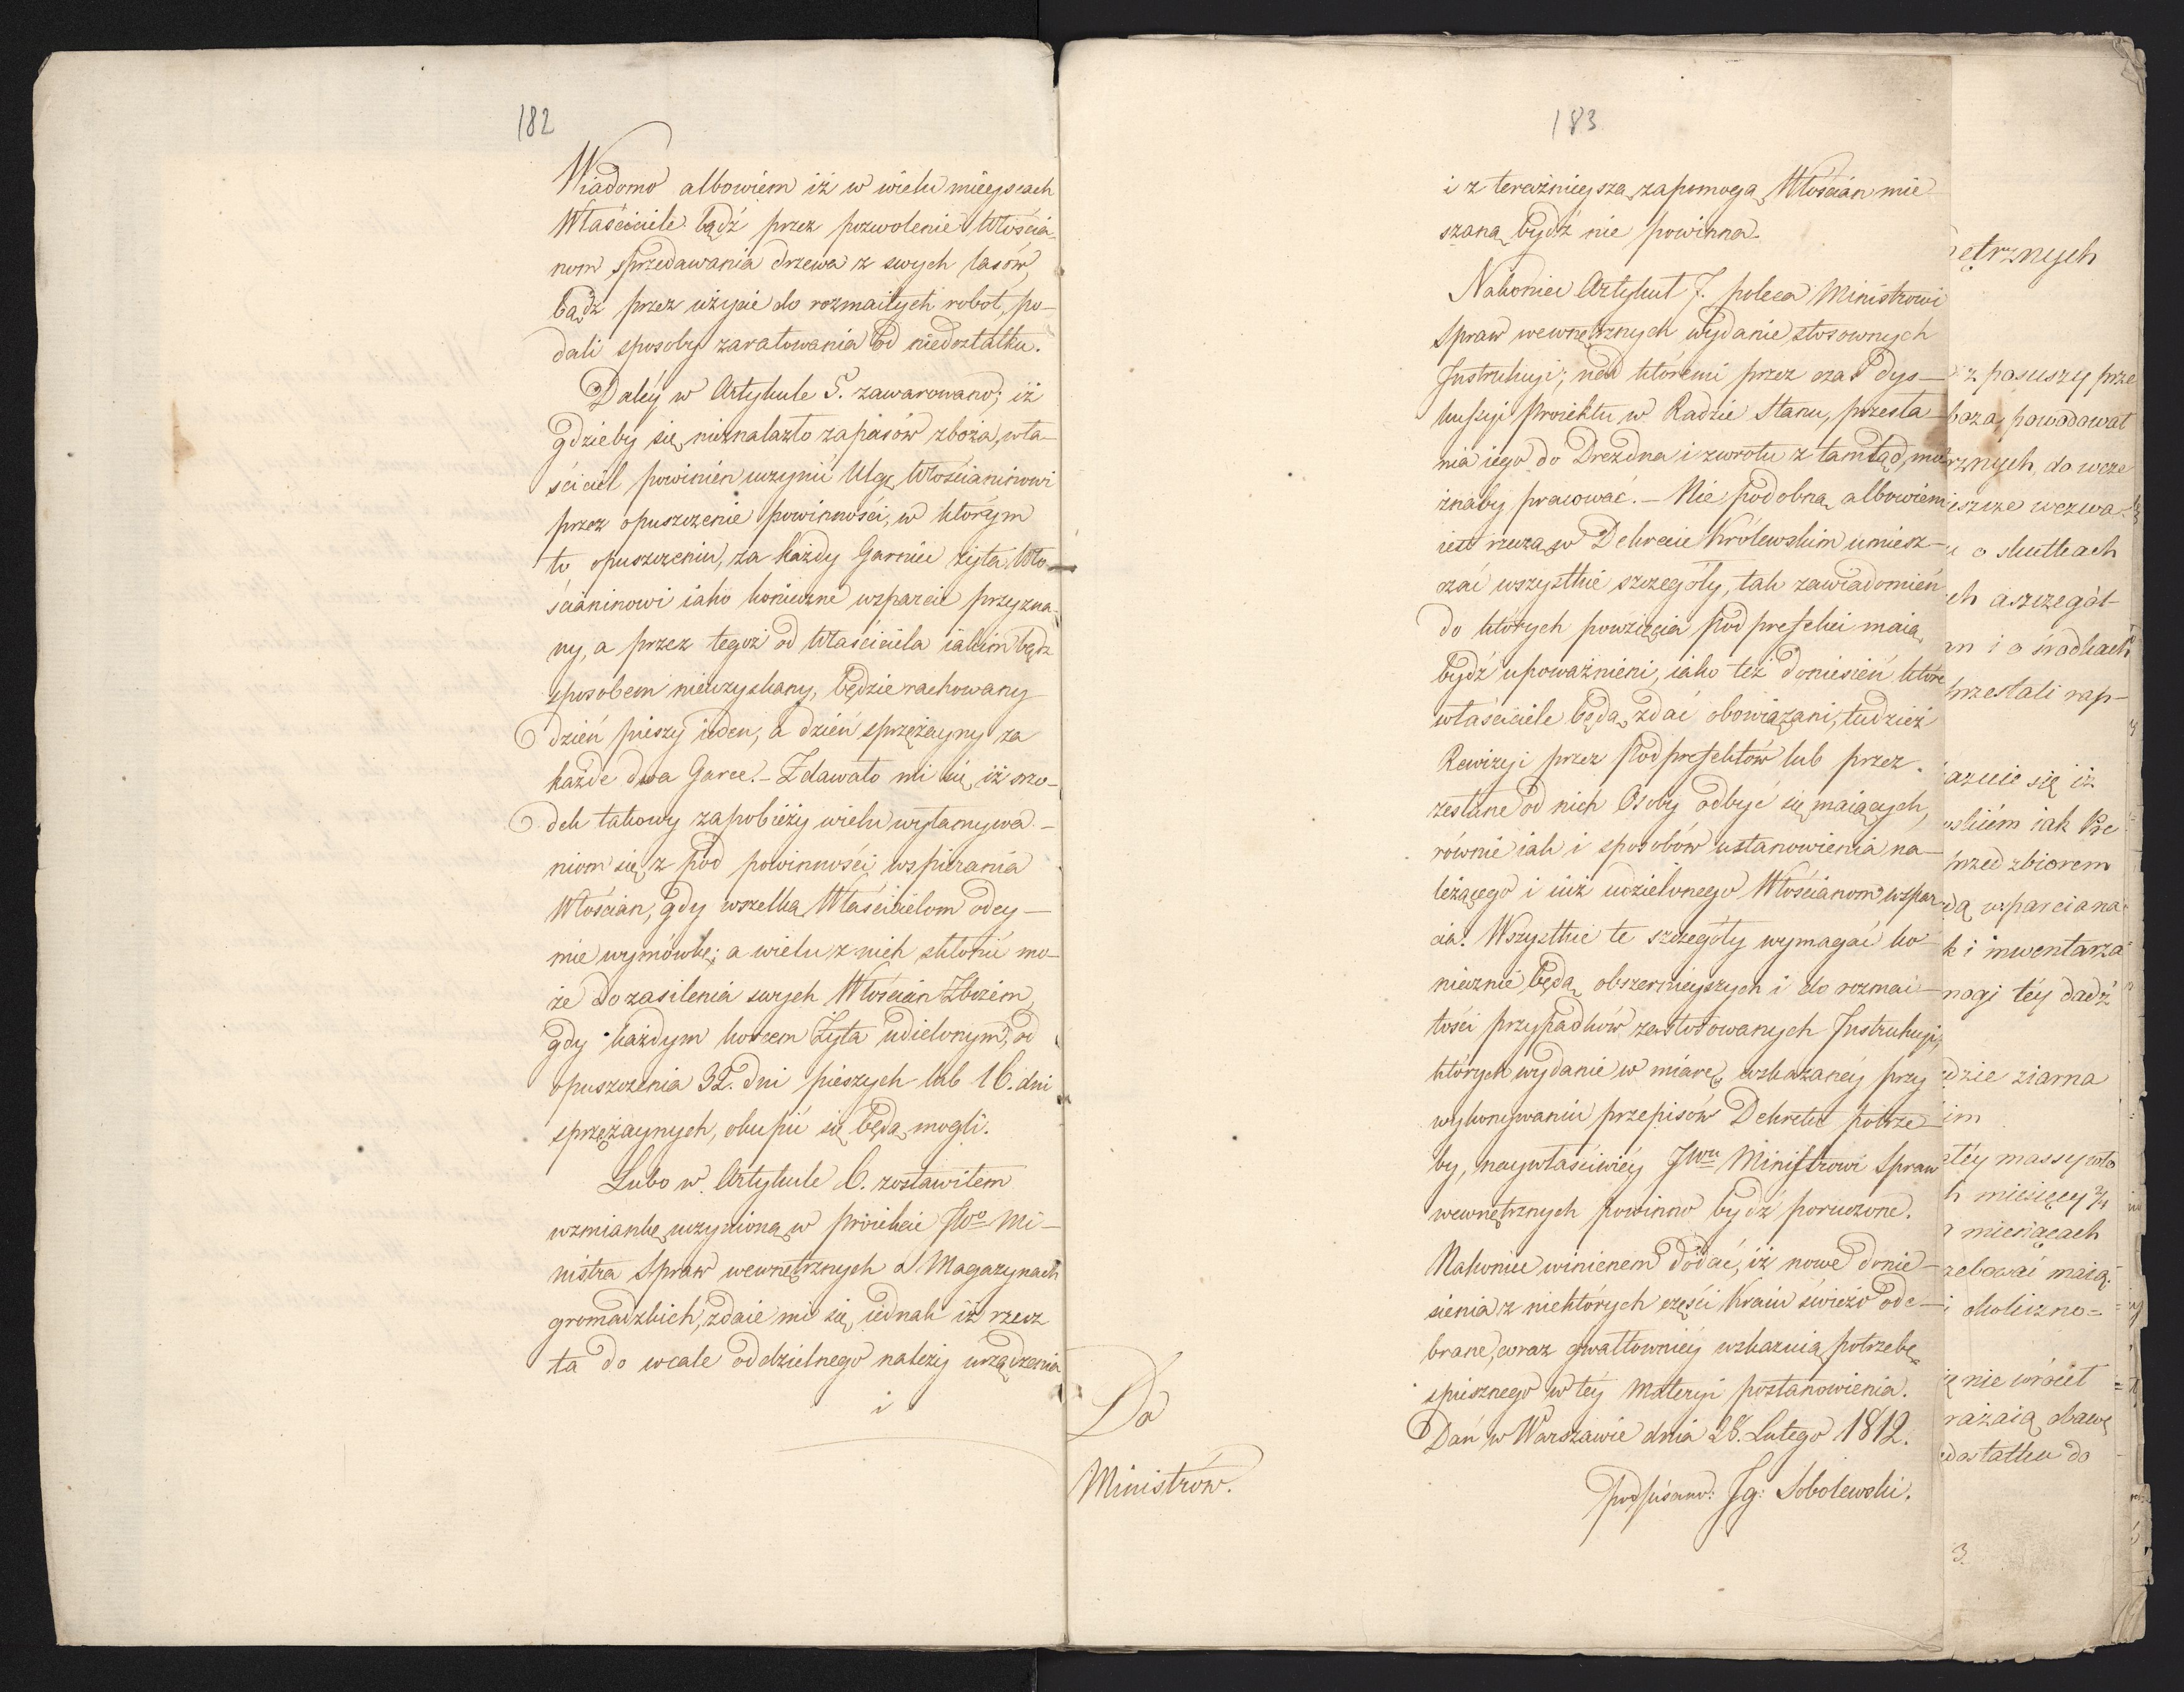 182
Wiadomo albowiem iż w wielu mieyscach
Właściciele bądź przez pozwolenie Włościa-
nom sprzedawania drzewa z swych lasów,
bądz przez użycie do rozmaitych robot, po-
dali sposoby zaratowania od niedostatku.
Daléy w Artykule 5. zawarowano; iż
gdzieby się nieznalazło zapasów zboża, wła-
ściciel powinien uczynić Ulgę Włościaninowi
przez opuszczenie powinności, w którym
to opuszczeniu, za każdy Garniec żyta, Wło-
ścianinowi iako konieczne wsparcie przyzna-
ny, a przez tegoż od Właściciela iakim bądz
sposobem nieuzyskany, będzie rachowany
dzień pieszy ieden, a dzień sprzężayny za
każde dwa Garce. – Zdawało mi się, iż szro-
dek takowy zapobieży wielu wyłamywa-
niom się z pod powinności wspierania
Włościan, gdy wszelką Właścicielom odey-
mie wymówkę; a wielu z nich skłonić mo-
że do zasilenia swych Włościan Zbożem,
gdy każdym korcem Żyta udzielonym, od
opuszczenia 32. dni pieszych lub 16. dni
sprzężaynych, okupić się będą mogli.
Lubo w Artykule 6. zostawiłem
wzmiankę uczynioną w proiekcie JWo Mi-
nistra Spraw wewnętrznych o Magazynach
gromadzkich, zdaie mi się iednak iż rzecz
ta do wcale oddzielnego należy urządzenia
i
183
i z teraźnieyszą zapomogą Włościan mie
szaną bydź nie powinna.
Nakoniec Artykuł 7. poleca Ministrowi
Spraw wewnętrznych wydanie stosownych
Instrukcyi; nad któremi przez czas dys-
kussyi Proiektu w Radzie Stanu, przesła-
nia iego do Drezdna i zwrotu z tamtąd, mo
żnaby pracować. – Nie podobną albowiem
iest rzeczą w Dekrecie Królewskim umiesz-
czać wszystkie szczegóły, tak zawiadomień
do których powzięcia Podprefekci maią
bydź upoważnieni, iako też doniesień które
właściciele będą zdać obowiązani, tudzież
Rewizyi przez Podprefektów lub przez
zesłane od nich Osoby odbyć się maiących,
równie iak i sposobów ustanowienia na-
leżącego i iuż udzielonego Włościanom wspar
cia. Wszystkie te szczegóły wymagać ko-
niecznie będą obszernieyszych i do rozmai-
tości przypadków zastosowanych Instrukcyi,
których wydanie w miarę wskazanéy przy
wykonywaniu przepisów Dekretu potrze-
by, naywłaściwiéy JWmu Ministrowi Spraw
wewnętrznych powinno bydź poruczone.
Nakoniec winienem dodać, iż nowe donie-
sienia z niektórych części Kraiu świeżo ode-
brane, coraz gwałtowniéy wskazuią potrzebę
spiesznego w téy Materyi postanowienia.
Dan w Warszawie dnia 28. Lutego 1812.
podpisano: Ig: Sobolewski.
Do
Ministrów.
ętrznych
z pasuszy prze
powodował
rznych, do wcze
iszcze wezwa
o skutkach
ch aszczegól-
m i o środkach
przesłali rap-
azuie się iż
wskiém iak Pre
przed zbiorem
dą wsparciana
k i inwentarza
mogi téy dadź
dzie ziarna
im
téy massy
h miesięcy 3/4
miesiącach
zebować maią.
okoliczno=
ę nie wrócił
rażaią obawę
dostatku do
3.